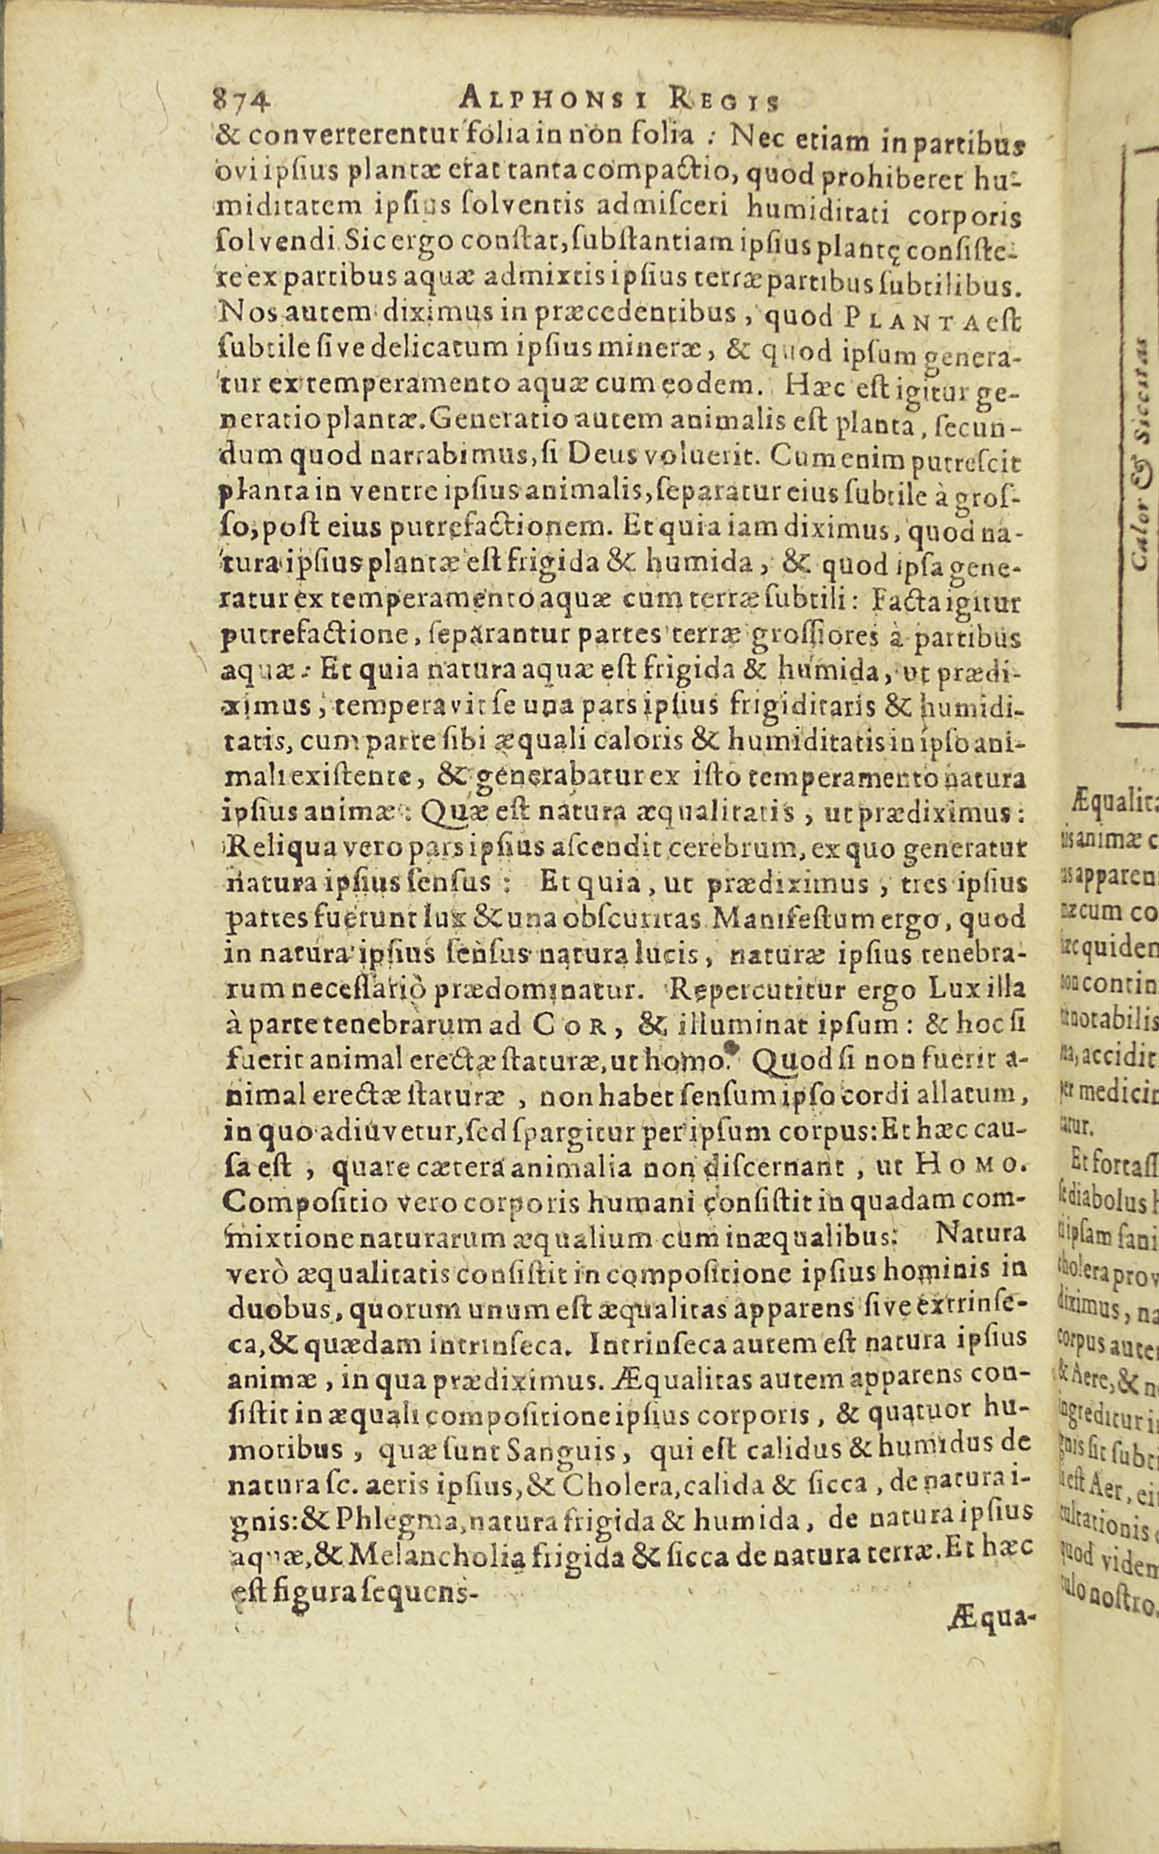 874 ALPHONSI REGIS
& converterentur folia in non folia : Nec etiam in partibus
ovi ipſius plantæ erat tanta compactio, quod prohiberet hu-
miditatem ipſius ſolventis admiſceri humiditati corporis
ſolvendi. Sic ergo conſtat, ſubſtantiam ipſius plantę conſiſte-
re ex partibus aquæ admixtis ipſius terræ partibus ſubtilibus.
Nos autem diximus in præcedentibus, quod PLANTA eſt
ſubtile ſive delicatum ipſius mineræ, & quod ipſum genera-
tur ex temperamento aquæ cum eodem. Hæc eſt igitur ge-
neratio plantæ. Generatio autem animalis eſt planta, ſecun-
dum quod narrabimus, ſi Deus voluerit. Cum enim putreſcit
planta in ventre ipſius animalis, ſeparatur eius ſubtile à groſ-
ſo, poſt eius putrefactionem. Et quia iam diximus, quod na-
tura ipſius plantæ eſt frigida & humida, & quod ipſa gene-
ratur ex temperamento aquæ cum terræ ſubtili: Facta igitur
putrefactione, ſeparantur partes terræ groſſiores à partibus
aquæ: Et quia natura aquæ eſt frigida & humida, ut prædi-
ximus, temperavit ſe una pars ipſius frigiditatis & humidi-
tatis, cum parte ſibi æquali caloris & humiditatis in ipſo ani-
mali exiſtente, & generabatur ex iſto temperamento natura
ipſius animæ: Quæ eſt natura æqualitatis, ut prædiximus:
Reliqua vero pars ipſius aſcendit cerebrum, ex quo generatur
natura ipſius ſenſus: Et quia, ut prædiximus, tres ipſius
partes fuerunt lux & una obſcuritas. Manifeſtum ergo, quod
in natura ipſius ſenſus natura lucis, naturæ ipſius tenebra-
rum neceſſariò prædominatur. Repercutitur ergo Lux illa
à parte tenebrarum ad COR, & illuminat ipſum: & hoc ſi
fuerit animal erectæ ſtaturæ, ut homo. Quod ſi non fuerit a-
nimal erectæ ſtaturæ, non habet ſenſum ipſo cordi allatum,
in quo adiuvetur, ſed ſpargitur per ipſum corpus: Et hæc cau-
ſa eſt, quare cætera animalia non diſcernant, ut HOMO.
Compoſitio vero corporis humani conſiſtit in quadam com-
mixtione naturarum æqualium cum inæqualibus: Natura
verò æqualitatis conſiſtit in compoſitione ipſius hominis in
duobus, quorum unum eſt æqualitas apparens ſive extrinſe-
ca, & quædam intrinſeca. Intrinſeca autem eſt natura ipſius
animæ, in qua prædiximus. Æqualitas autem apparens con-
ſiſtit in æquali compoſitione ipſius corporis, & quatuor hu-
moribus, quæ ſunt Sanguis, qui eſt calidus & humidus de
natura ſc. aeris ipſius, & Cholera, calida & ſicca, de natura i-
gnis: & Phlegma, natura frigida & humida, de natura ipſius
aquæ, & Melancholia frigida & ſicca de natura terræ. Et hæc
eſt figura ſequens-
Æqua-
Calor & Siccitas
Æqualit
animæ c
apparen
cum co
quiden
contin
notabilis
accidit
medicin
Et fortaſſ
diabolus h
ipſam ſani
cholera prov
diximus, na
corpus aute
& Aere, & n
ingreditur i
ſit ſubti
eſt Aer, ei
quod videm
noſtro.